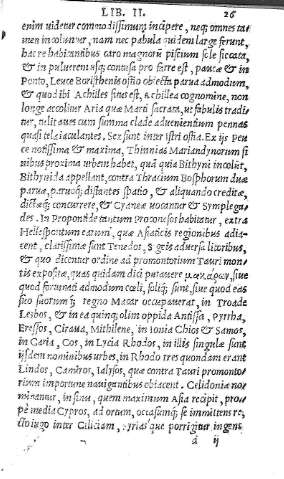 LIB. II. 26
enim uidetur commodissimum incipere, neq; omnes ta
men incoluntur, nam nec pabula quidem large ferunt,
hac re habitantibus caro magnorũ piscium sole siccata,
& in puluerem usq; contusa pro farre est, paucæ & in
Ponto, Leuce Boristhenis ostio obiecta parua admodum,
& quod ibi Achilles situs est, achillea cognomine, non
longe accolitur Aria quæ Marti sacrata, ut fabulis tradi
tur, tulit aues cum summa clade aduenientium pennas
quasi tela iaculantes. Sex sunt inter istri ostia. Ex ijs peu
ce notissima & maxima, Thinnias Mariandynorum fi
nibus proxima urbem habet, quã quia Bithyni incolũt,
Bithynida appellant, contra Thracium Bosphorum duæ
paruæ, paruoq; distantes spatio, & aliquando creditæ,
dictæq; concurrere, & Cyaneæ uocantur & Symplega-
des. In Propontide tantum Proconesos habitatur, extra
Hellespontum earum, quæ Asiaticis regionibus adia-
cent, clarissimæ sunt Tenedos, Sigeis aduersa litoribus,
& quo dicuntur ordine ad promontorium Tauri mon-
tis expositæ, quas quidam dici putauere μακάρων, siue
quod fortunati admodum cœli, soliq; sunt, siue quod eas
suo suorumq; regno Macar occupauerat, in Troade
Lesbos, & in ea quinq; olim oppida Antissa, Pyrrha,
Eressos, Ciraua, Mithilene, in ionia Chios & Samos,
in Caria, Cos, in Lycia Rhodos, in illis singulæ sunt
ijsdem nominibus urbes, in Rhodo tres quondam erant
Lindos, Camiros, Ialysos, quæ contra Tauri promonto-
rium importune nauigantibus obiacent. Celidoniæ no
minantur, in sinu, quem maximum Asia recipit, pro-
pè media Cypros, ad ortum, occasumq; se immittens re,
cto iugo inter Ciliciam, syrias que porrigitur ingens
d ij